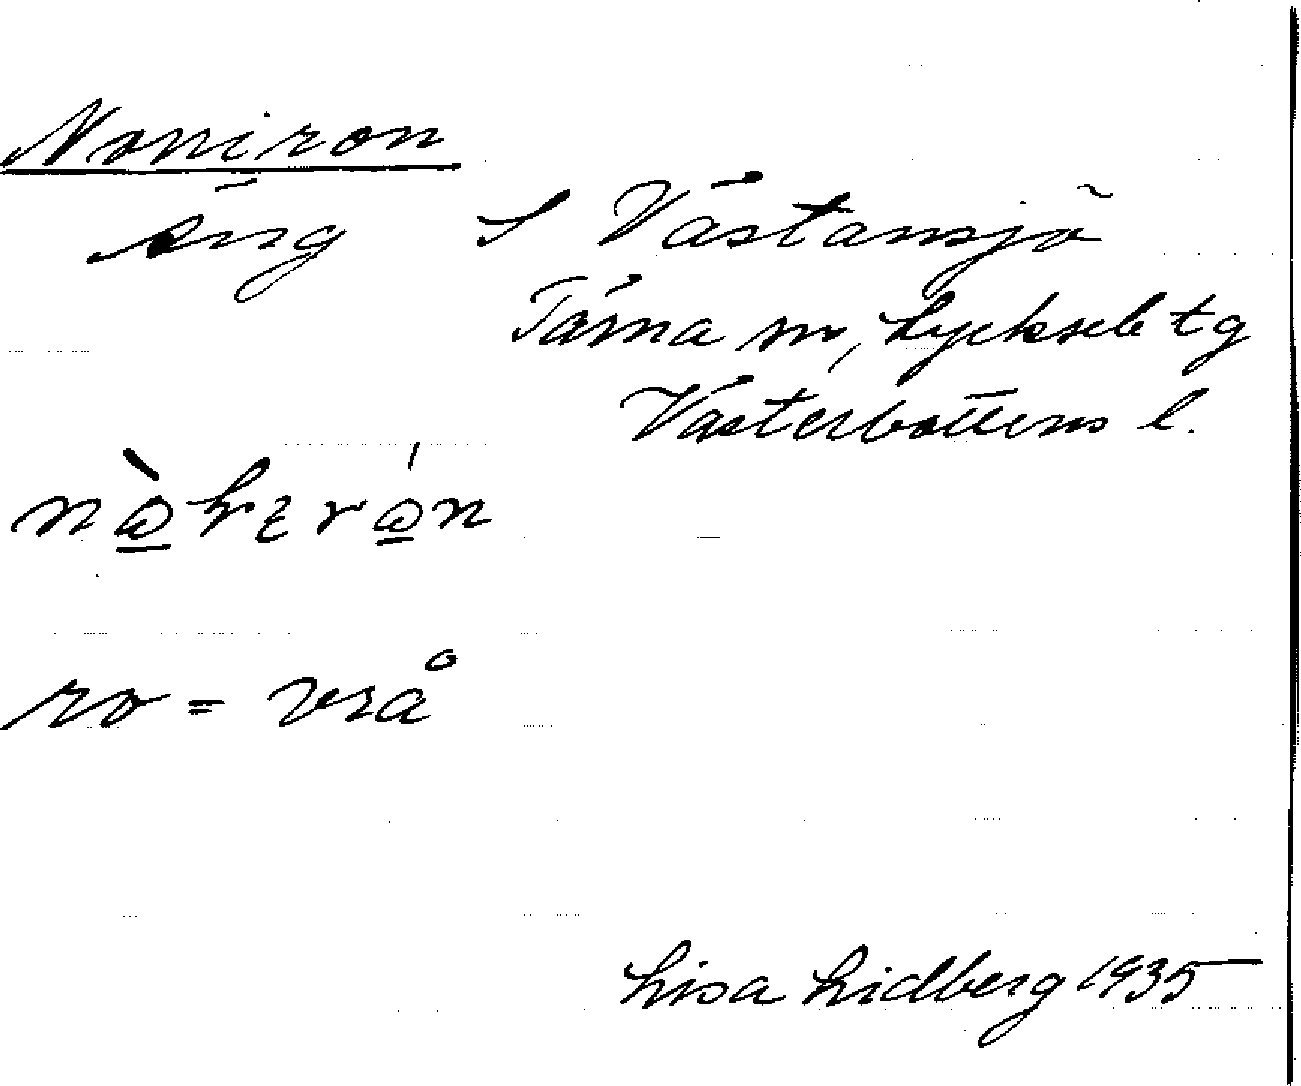 Noniron
äng S Västansjö
Tärna sn, Lycksele tg
Västerbottens l.
ro = vrå
Lisa Lidberg 1935